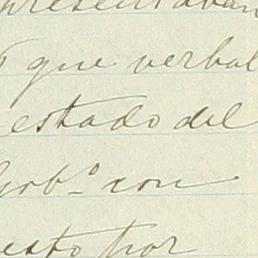 presentavan
que verbal
estado del
Gobº con
esto por